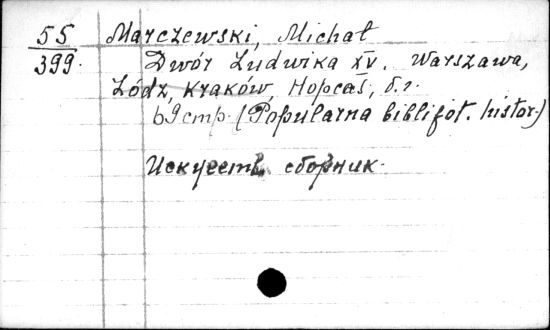 55
399.
Marczewski, Michał
Dwór Ludwika XV. Warszawa,
Łódź, Kraków, Hopcaś, б.г.
69 стр. (Popularna biblijot. histor.)
Искусств. сборник.